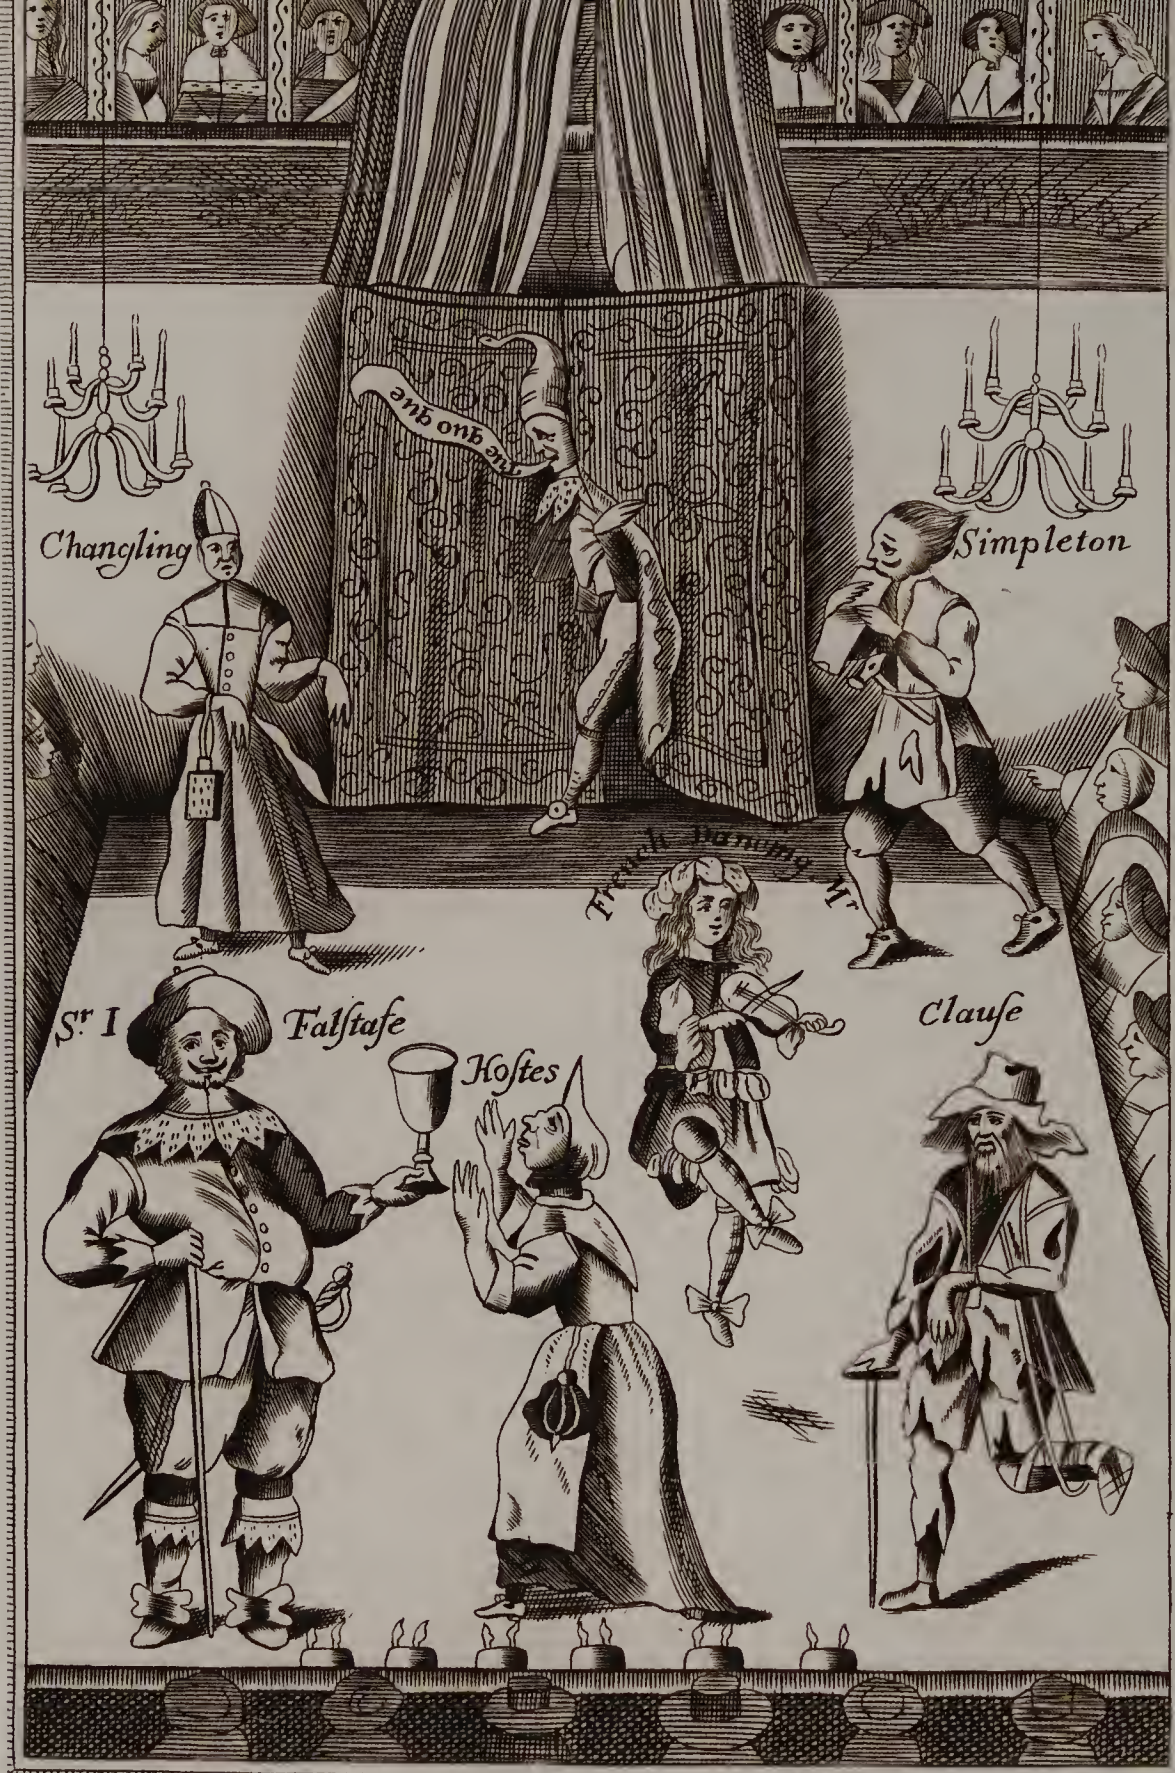 Tue quo que
Changling
Simpleton
French Dancing Mr
Sr I Falſtafe
Hoſtes
Clauſe